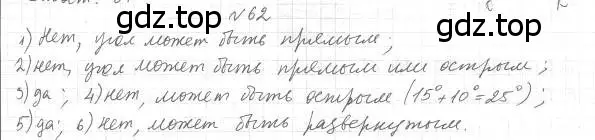 №62
1) Нет, угол может быть прямым;
2) нет, угол может быть прямым или острым;
3) да; 4) нет, может быть острым (15°+10°=25°);
5) да; 6) нет, может быть развернутым.